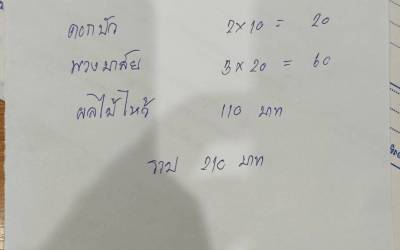 ดอกบัว 2 x 10 = 20
พวงมาลัย 3 x 20 = 60
ผลไม้ไหว้ 110 บาท
รวม 210 บาท